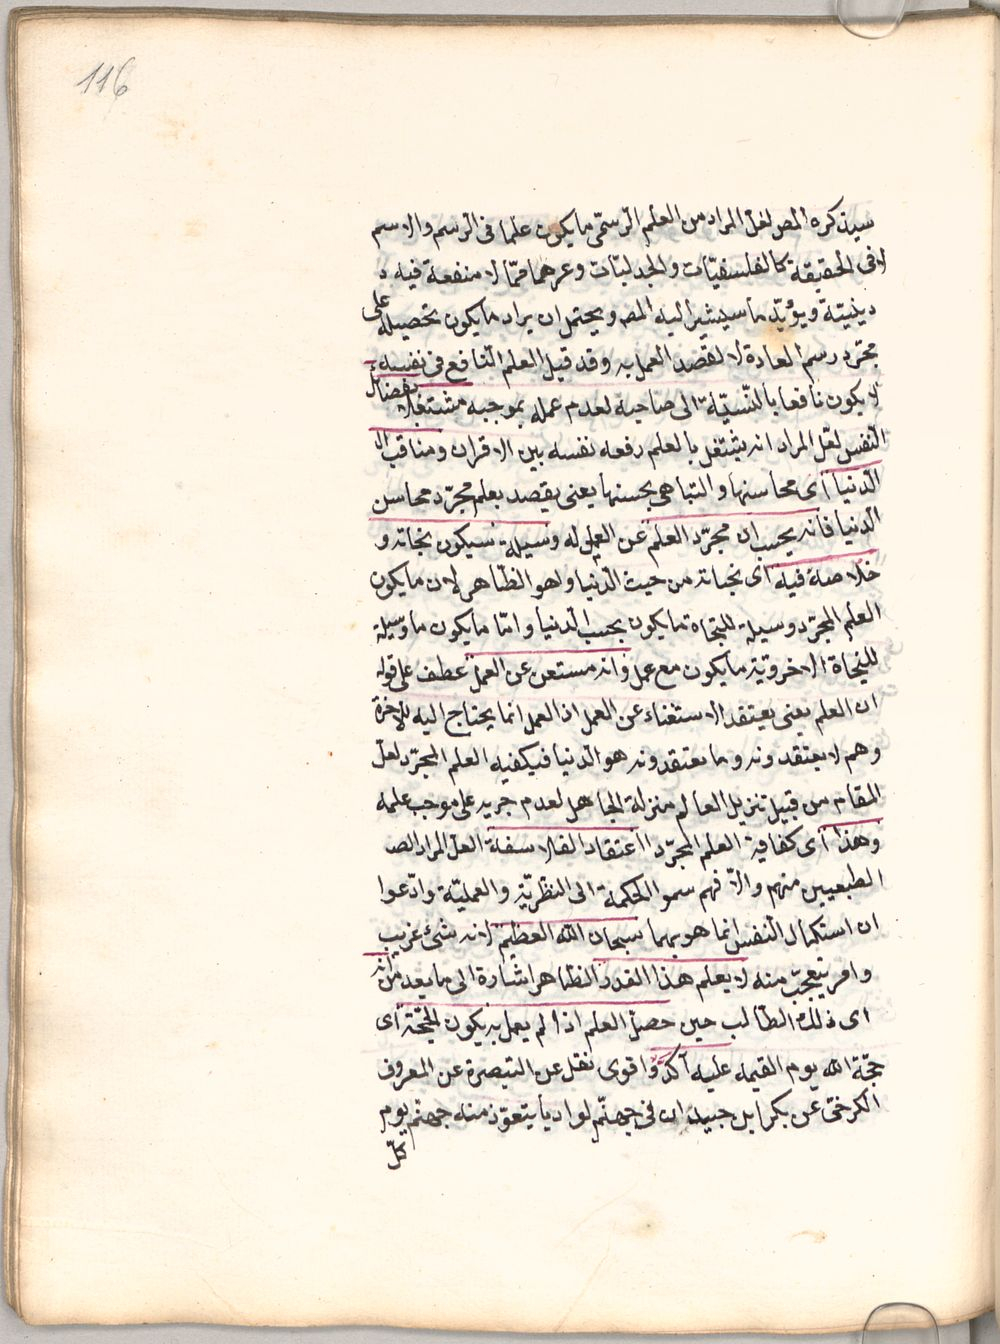 116
سيذكره المص لعل المراد من العلم الرسمى ما يكون علما فى الرسم والاسم
لا فى الحقيقة كالفلسفيّات والجدليّات وغيرهما ممّا لا منفعة فيه
دينيّة ويؤيّد ما سيشير اليه المص ويحتمل ان يراد ما يكون تحصيله على
مجرّد رسم العادة لا لقصد العمل به وقد قيل العلم النافع فى نفسه
لا يكون نافعا بالنسبة الى صاحبه لعدم عمله بموجبه مشتغلا بفضائل
النفس لعل المراد انه يشتغل بالعلم رفعه نفسه بين الاقران ومناقب
الدنيا اى محاسنها والتباهى بحسنها يعنى يقصد بعلم مجرّد محاسن
الدنيا فانه يحسب ان مجرّد العلم عن العمل له وسيلة سيكون نجاته و
خلاصه فيه اى نجاته من حيث الدنيا وهو الظاهر لان ما يكون
العلم المجرّد وسيلة للنجاة ما يكون بحسب الدنيا وامّا ما يكون ما وسيلة
للنجاة الاخرويّة ما يكون مع عمل وانه مستغن عن العمل عطف على قوله
ان العلم يعنى يعتقد الاستغناء عن العمل اذ العمل انما يحتاج اليه للاخرة
وهم لا يعتقدونه وما يعتقدونه هو الدنيا فيكفيه العلم المجرّد لعلّ
المقام من قبيل تنزيل العالم منزلة الجاهل لعدم جريه على موجب علمه
وهذا اى كفاية العلم المجرّد اعتقاد الفلاسفة لعل المراد
الطبعيين منهم والّا فهم سمو الحكمة الى النظريّة والعمليّة وادّعوا
ان استكمال النفس انما هو بهما سبحان الله العظيم لانه شئ غريب
وامر يتعجّب منه لا يعلم هذا القدر الظاهر اشارة الى ما بعد من انه
اى ذلك الطالب حين حصل العلم اذا لم يعمل به يكون للحجّة اى
حجّة الله يوم القيمه عليه آكد واقوى نقل عن التبصرة عن المعروف
الكرخى عن بكر ابل حبيد ان فى جهنّم لواديا يتعوّذ منه جهنّم يوم
كلّ